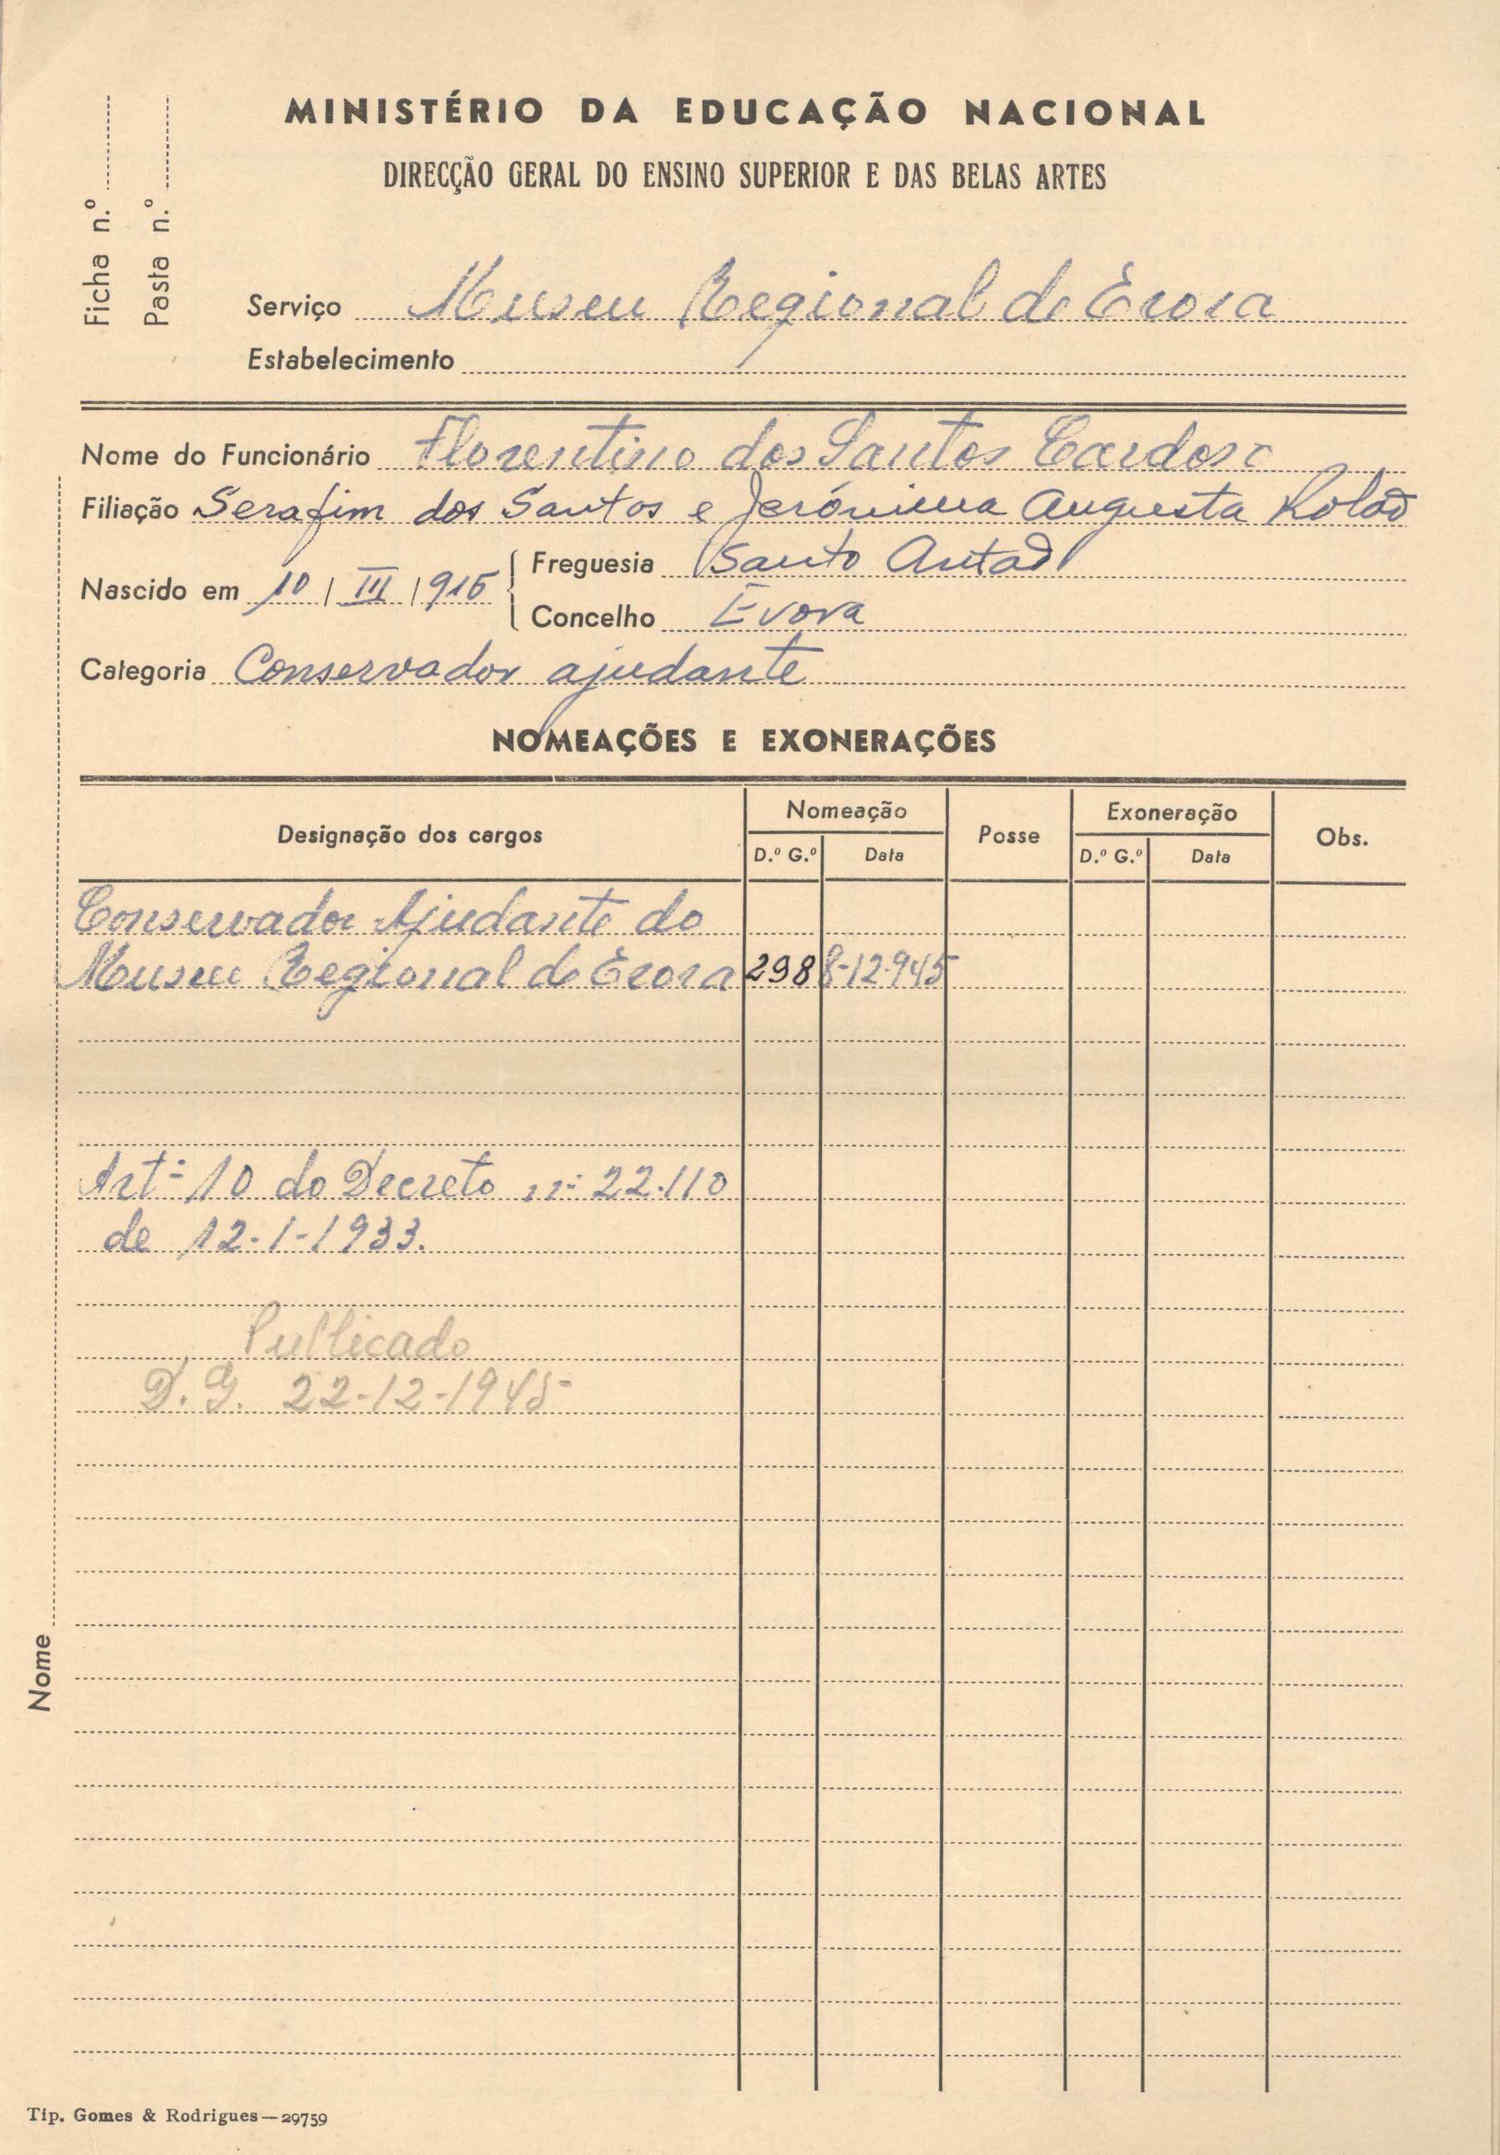 MINISTÉRIO DA EDUCAÇÃO NACIONAL
DIRECÇÃO GERAL DO ENSINO SUPERIOR E DAS BELAS ARTES
Ficha n.º
Pasta n.º
Serviço Museu Regional de Évora
Estabelecimento
Nome do Funcionário Florentino dos Santos Cardoso
Filiação Serafim dos Santos e Jerónima Augusta
Nascido em 10 / III / 915
Freguesia Santo Antão
Concelho Évora
Categoria Conservador ajudante
NOMEAÇÕES E EXONERAÇÕES
Designação dos cargos Nomeação Posse Exoneração Obs.
D.º G.º Data D.º G.º Data
Conservador Ajudante do
Museu Regional de Évora 298 8-12-945
Artº 10 do Decreto nº 22.110
de 12-1-1933.
Publicado
D. G. 22-12-1945
Nome
Tip. Gomes & Rodrigues—29759